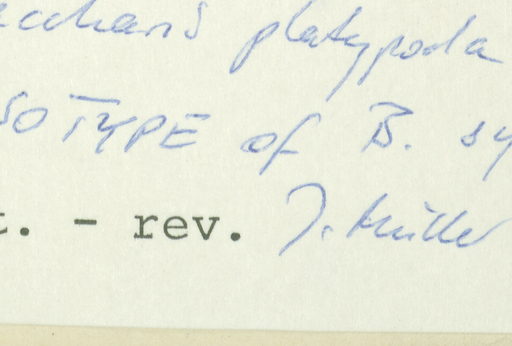 ccharis platypoda
SOTYPE of B. sy
t. - rev. J. Müller